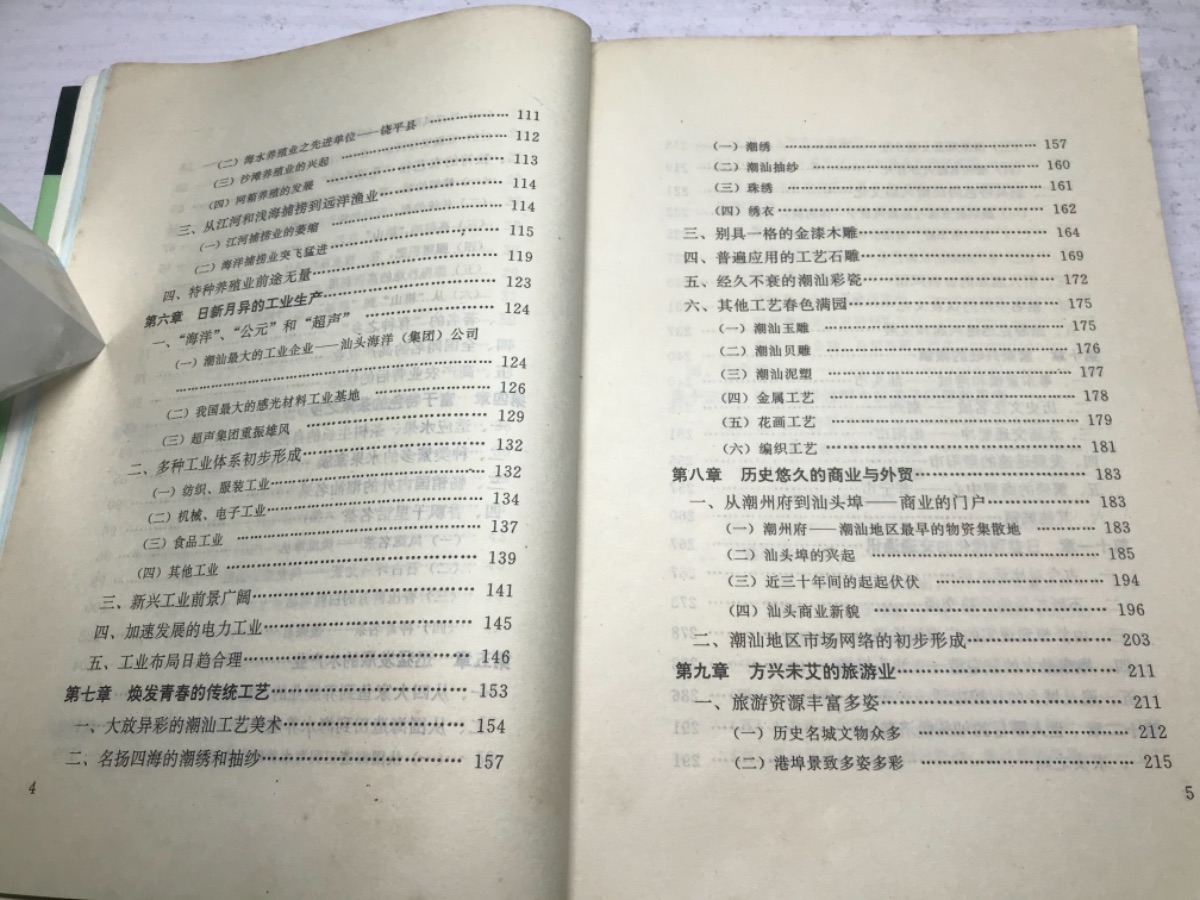 (二) 海水养殖业之先进单位——饶平县 ……………… 111
(三) 沙滩养殖业的兴起 ……………… 112
(四) 网箱养殖的发展 ……………… 113
三、从江河和浅海捕捞到远洋渔业 ……………… 114
(一) 江河捕捞业的萎缩 ……………… 114
(二) 海洋捕捞业突飞猛进 ……………… 115
四、特种养殖业前途无量 ……………… 119
第六章 日新月异的工业生产 ……………… 123
一、“海洋”、“公元”和“超声” ……………… 124
(一) 潮汕最大的工业企业——汕头海洋（集团）公司
……………… 124
(二) 我国最大的感光材料工业基地 ……………… 126
(三) 超声集团重振雄风 ……………… 129
二、多种工业体系初步形成 ……………… 132
(一) 纺织、服装工业 ……………… 132
(二) 机械、电子工业 ……………… 134
(三) 食品工业 ……………… 137
(四) 其他工业 ……………… 139
三、新兴工业前景广阔 ……………… 141
四、加速发展的电力工业 ……………… 145
五、工业布局日趋合理 ……………… 146
第七章 焕发青春的传统工艺 ……………… 153
一、大放异彩的潮汕工艺美术 ……………… 154
二、名扬四海的潮绣和抽纱 ……………… 157
4
(一) 潮绣 ……………… 157
(二) 潮汕抽纱 ……………… 160
(三) 珠绣 ……………… 161
(四) 绣衣 ……………… 162
三、别具一格的金漆木雕 ……………… 164
四、普遍应用的工艺石雕 ……………… 169
五、经久不衰的潮汕彩瓷 ……………… 172
六、其他工艺春色满园 ……………… 175
(一) 潮汕玉雕 ……………… 175
(二) 潮汕贝雕 ……………… 176
(三) 潮汕泥塑 ……………… 177
(四) 金属工艺 ……………… 178
(五) 花画工艺 ……………… 179
(六) 编织工艺 ……………… 181
第八章 历史悠久的商业与外贸 ……………… 183
一、从潮州府到汕头埠——商业的门户 ……………… 183
(一) 潮州府——潮汕地区最早的物资集散地 ……………… 183
(二) 汕头埠的兴起 ……………… 185
(三) 近三十年间的起起伏伏 ……………… 194
(四) 汕头商业新貌 ……………… 196
二、潮汕地区市场网络的初步形成 ……………… 203
第九章 方兴未艾的旅游业 ……………… 211
一、旅游资源丰富多姿 ……………… 211
(一) 历史名城文物众多 ……………… 212
(二) 港埠景致多姿多彩 ……………… 215
5